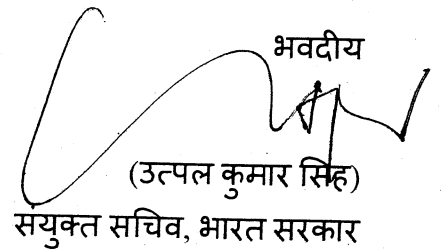 भवदीय
(उत्पल कुमार सिंह)
संयुक्त सचिव, भारत सरकार